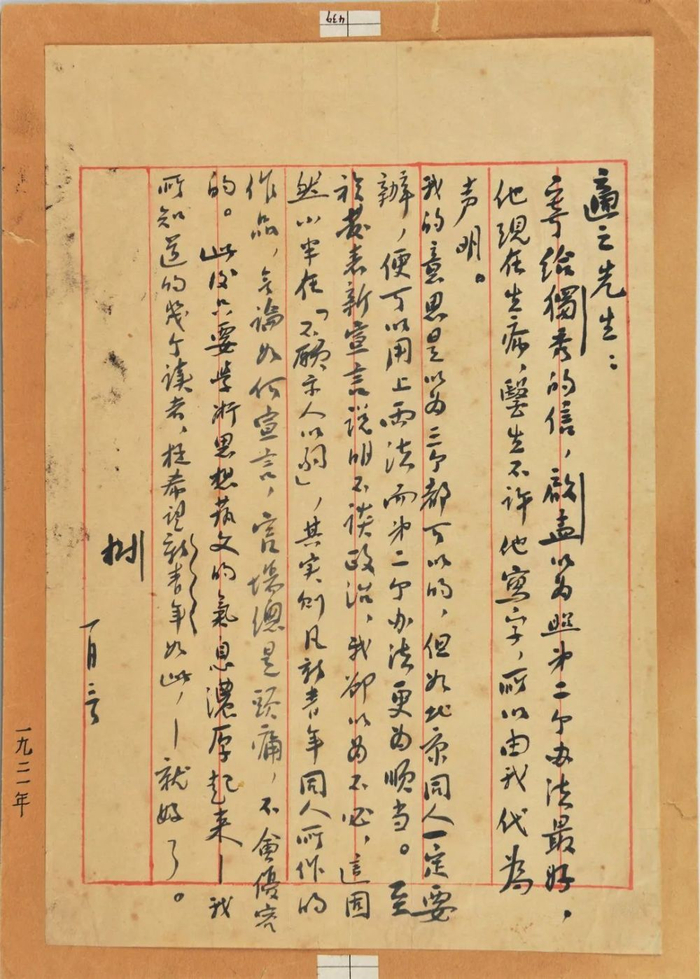 適之先生：
寄給獨秀的信，啟孟以為照第二个办法最好，
他現在生病，醫生不許他寫字，所以由我代為
声明。
我的意思是以为三个都可以的，但如北京同人一定要
辦，便可以用上两法而第二个办法更为顺当。至
於發表新宣言說明不談政治，我卻以为不必，這固
然小半在「不願示人以弱」，其实则凡新青年同人所作的
作品，無論如何宣言，官場總是頭痛，不會優容
的。此後只要学術思想芸文的氣息濃厚起来—我
所知道的幾个读者，极希望新青年如此，—就好了。
树
一月三日
一九二一年
439